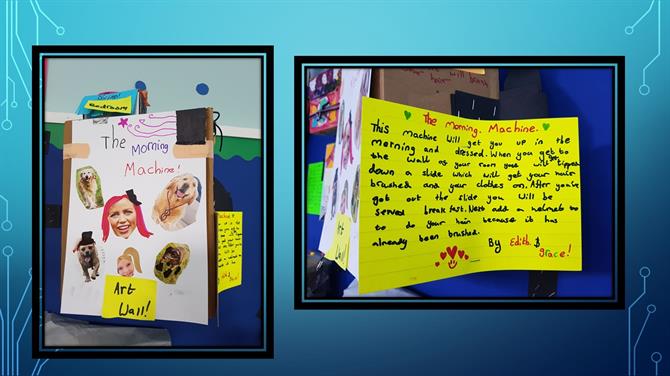 bedroom
The
Morning
Machine!
Art
Wall!
hair will
The Morning. Machine.
This machine Will get you up in the
morning and dressed. When you get to
the wall as your room you will get tipped
down a slide which will get your hair
brushed and your clothes on. After you've
got out the slide you will be
served breakfast. Next add a helmet to
to do your hair because it has
already been brushed.
By Edith &
grace!
Art
Wall!